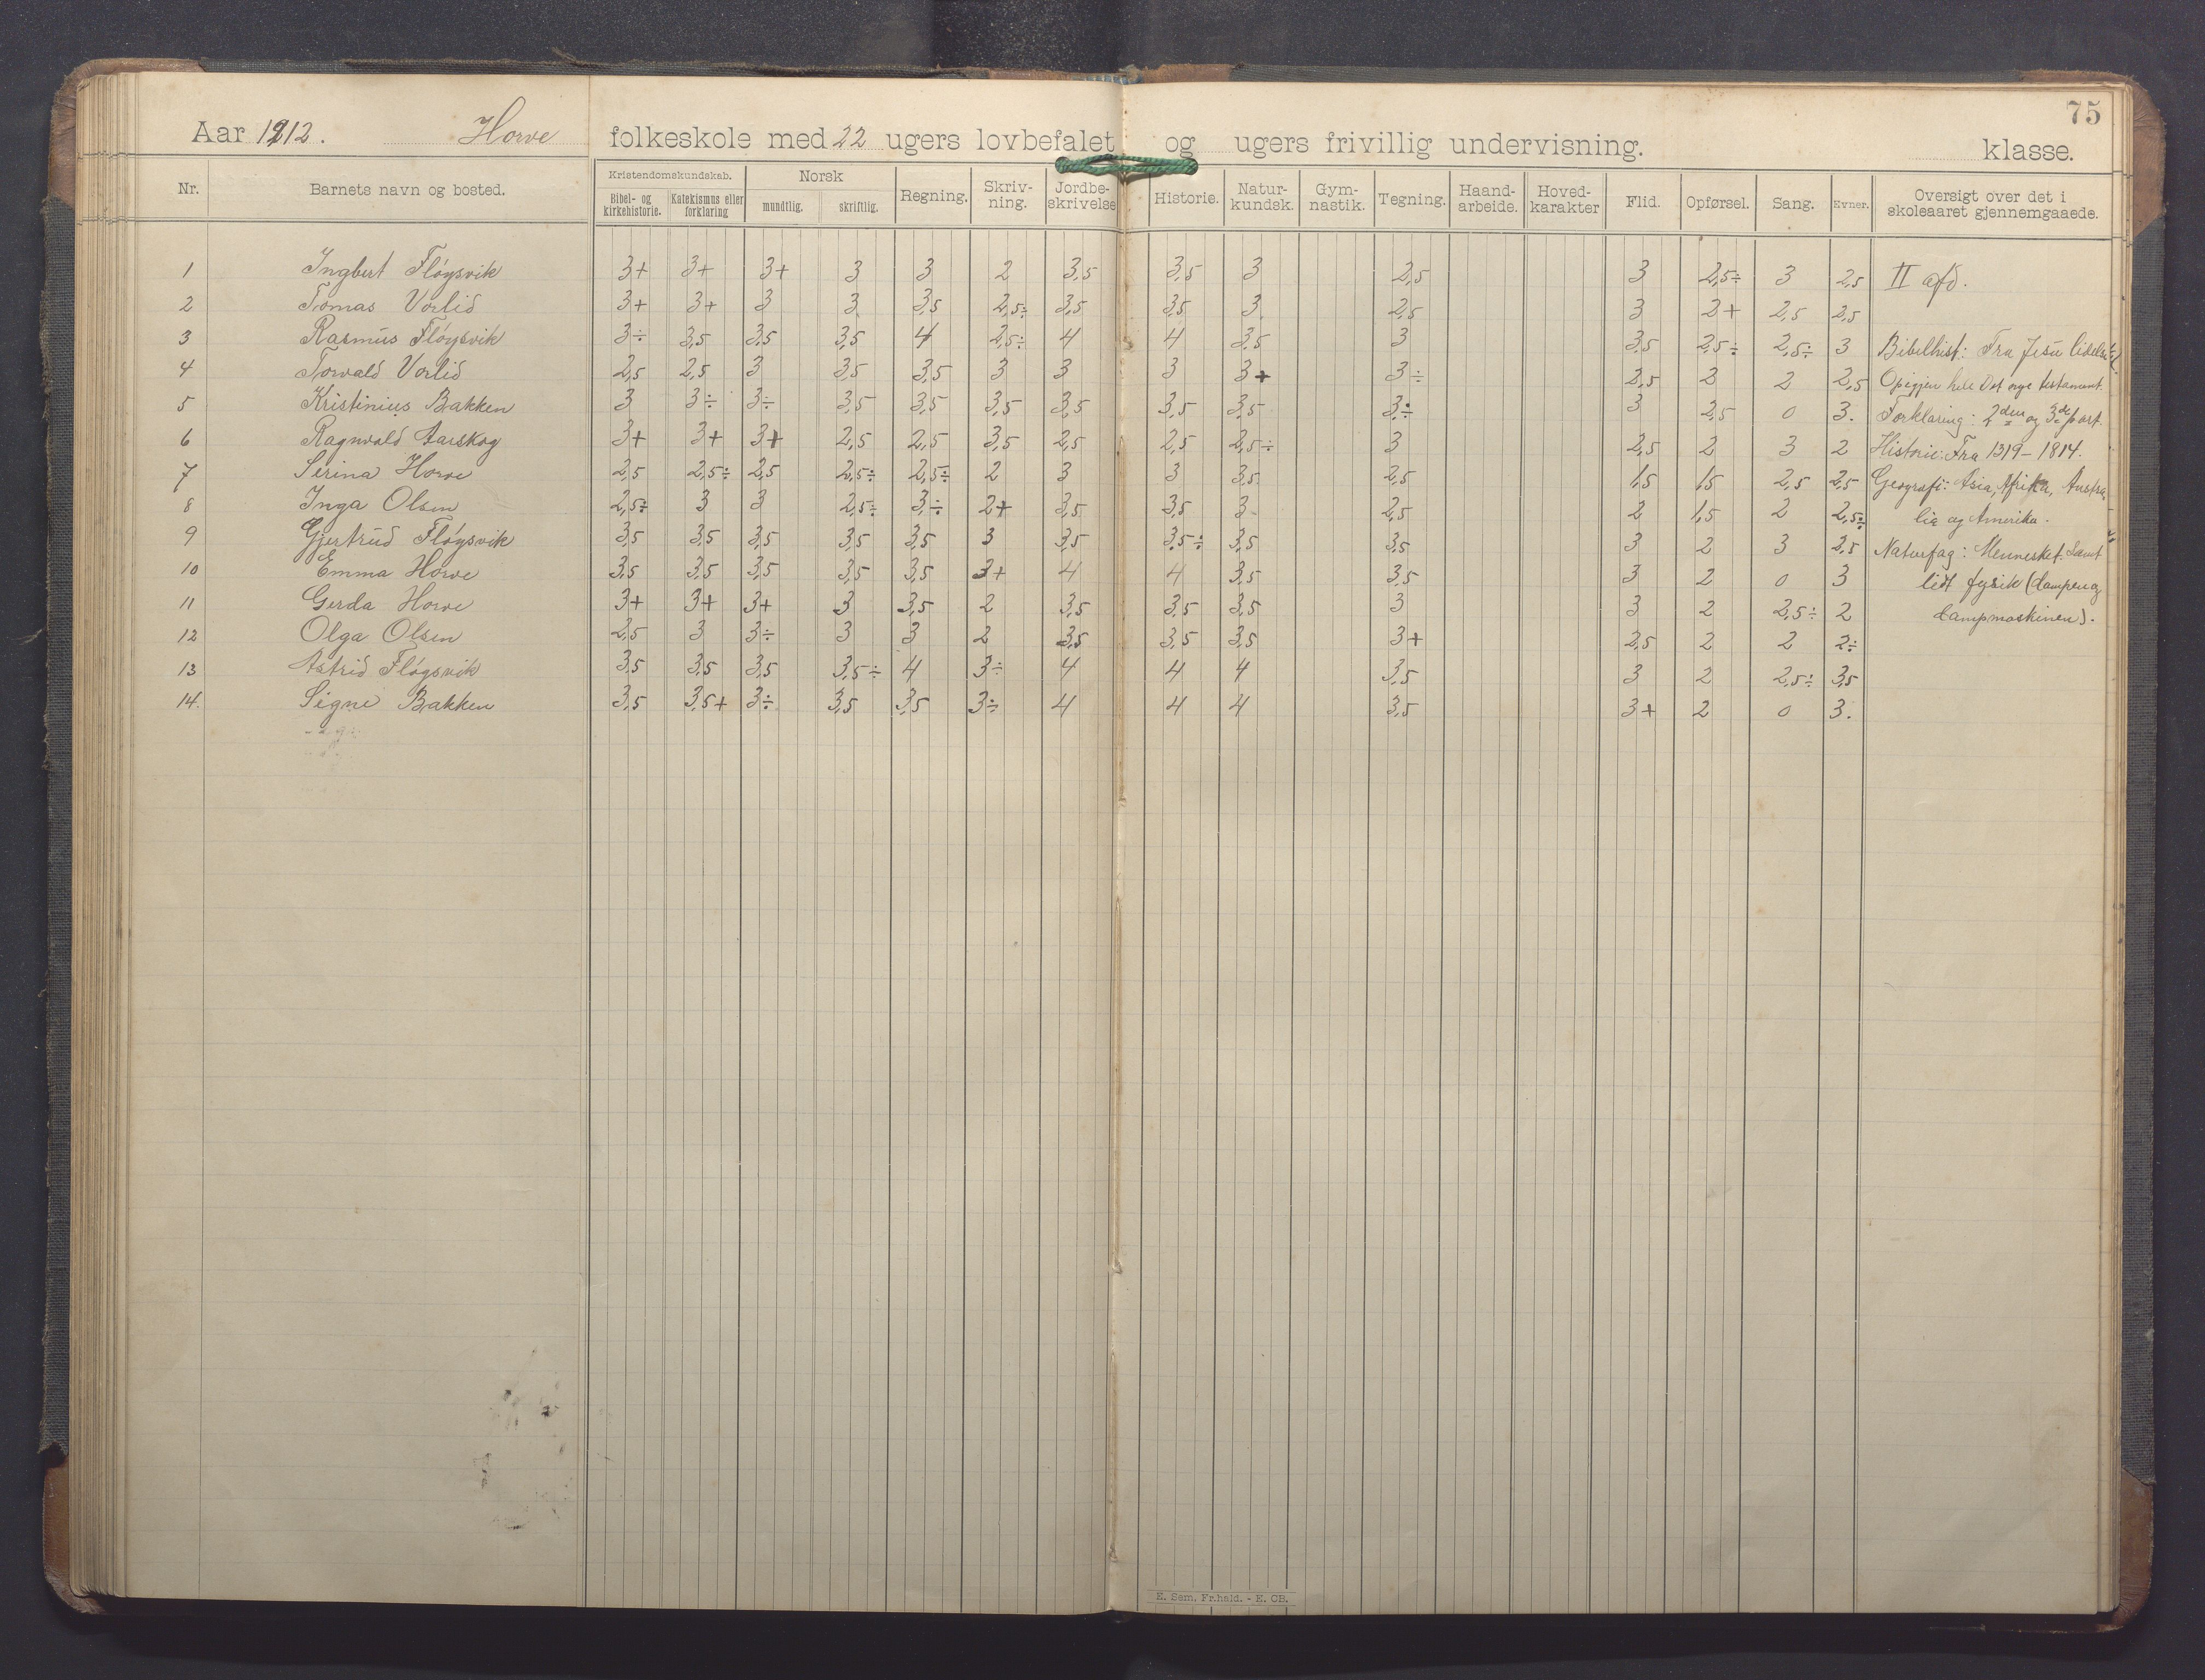 75
Aar 1912. Horve folkeskole med 22 ugers lovbefalet og ugers frivillig undervisning. klasse.
Nr. Barnets navn og bosted. Kristendomskundskab. Bibel- og kirkehistorie. Katekismus eller forklaring Norsk mundtlig. skriftlig. Regning. Skriv-ning. Jordbe-skrivelse Historie. Natur-kundsk. Gym-nastik. Tegning. Haand-arbeide. Hoved-karakter Flid. Opførsel. Sang. Evner. Oversigt over det i skoleaaret gjennemgaaede.
1 Ingbert Fløysvik 3+ 3+ 3+ 3 3 2 3,5 3,5 3 2,5 3 2,5÷ 3 2,5 II afd.
2 Tomas Vorlid 3+ 3+ 3 3 3,5 2,5÷ 3,5 3,5 3 2,5 3 2+ 2,5 2,5
3 Rasmus Fløysvik 3÷ 3,5 3,5 3,5 4 2,5÷ 4 4 3,5 3 3,5 2,5÷ 2,5÷ 3 Bibelhist: Fra Jesu lidelse
4 Torvald Vorlid 2,5 2,5 3 3,5 3,5 3 3 3 3+ 3÷ 2,5 2 2 2,5 Opigjen hele Det nye testament.
5 Kristinius Bakken 3 3÷ 3÷ 3,5 3,5 3,5 3,5 3,5 3,5 3÷ 3 2,5 0 3. Forklaring: 2den og 3de part.
6 Ragnvald Aarskog 3+ 3+ 3+ 2,5 2,5 3,5 2,5 2,5 2,5÷ 3 2,5 2 3 2 Historie: Fra 1319-1814.
7 Serina Horve 2,5 2,5÷ 2,5 2,5÷ 2,5÷ 2 3 3 3,5 2,5 1,5 1,5 2,5 2,5 Geografi: Asia, Afrika, Austra
8 Inga Olsen 2,5÷ 3 3 2,5÷ 3÷ 2+ 3,5 3,5 3 2,5 2 1,5 2 2,5÷ lia og Amerika.
9 Gjertrud Fløysvik 3,5 3,5 3,5 3,5 3,5 3 3,5 3,5÷ 3,5 3,5 3 2 3 2,5 Naturfag: Mennesket. Samt
10 Emma Horve 3,5 3,5 3,5 3,5 3,5 3+ 4 4 3,5 3,5 3 2 0 3 lidt fysik (dampen og
11 Gerda Horve 3+ 3+ 3+ 3 3,5 2 3,5 3,5 3,5 3 3 2 2,5÷ 2 dampmaskinen).
12 Olga Olsen 2,5 3 3÷ 3 3 2 3,5 3,5 3,5 3+ 2,5 2 2 2÷
13 Astrid Fløgsvik 3,5 3,5 3,5 3,5÷ 4 3÷ 4 4 4 3,5 3 2 2,5÷ 3,5
14. Signe Bakken 3,5 3,5+ 3÷ 3,5 3,5 3÷ 4 4 4 3,5 3+ 2 0 3.
E. Sem. Fr.hald. - E. CB.